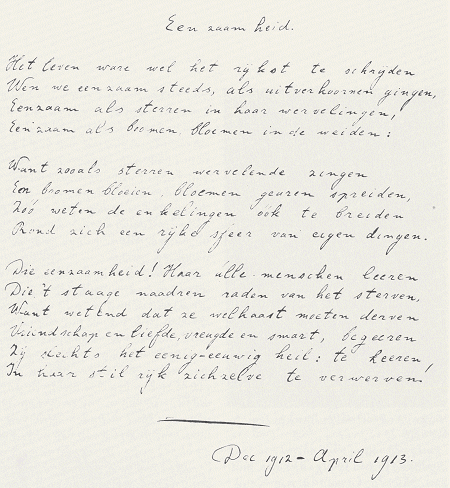 Eenzaamheid.
Het leven ware wel het rijkst te schrijden
Wen we eenzaam steeds, als uitverkoornen gingen,
Eenzaam als sterren in haar wervelingen,
Eenzaam als boomen, bloemen in de weiden:
Want zooals sterren wervelende zingen
En boomen bloeien, bloemen geuren spreiden,
Zóó weten de enkelingen óók te breiden
Rond zich een rijke sfeer van eigen dingen.
Die eenzaamheid! Haar álle menschen leeren
Die 't staage naadren raden van het sterven,
Want wetend dat ze welhaast moeten derven
Vriendschap en liefde, vreugde en smart, begeeren
Zij slechts het eenig-eeuwig heil: te keeren,
In haar stil rijk zichzelve te verwerven.
Dec 1912 - April 1913.